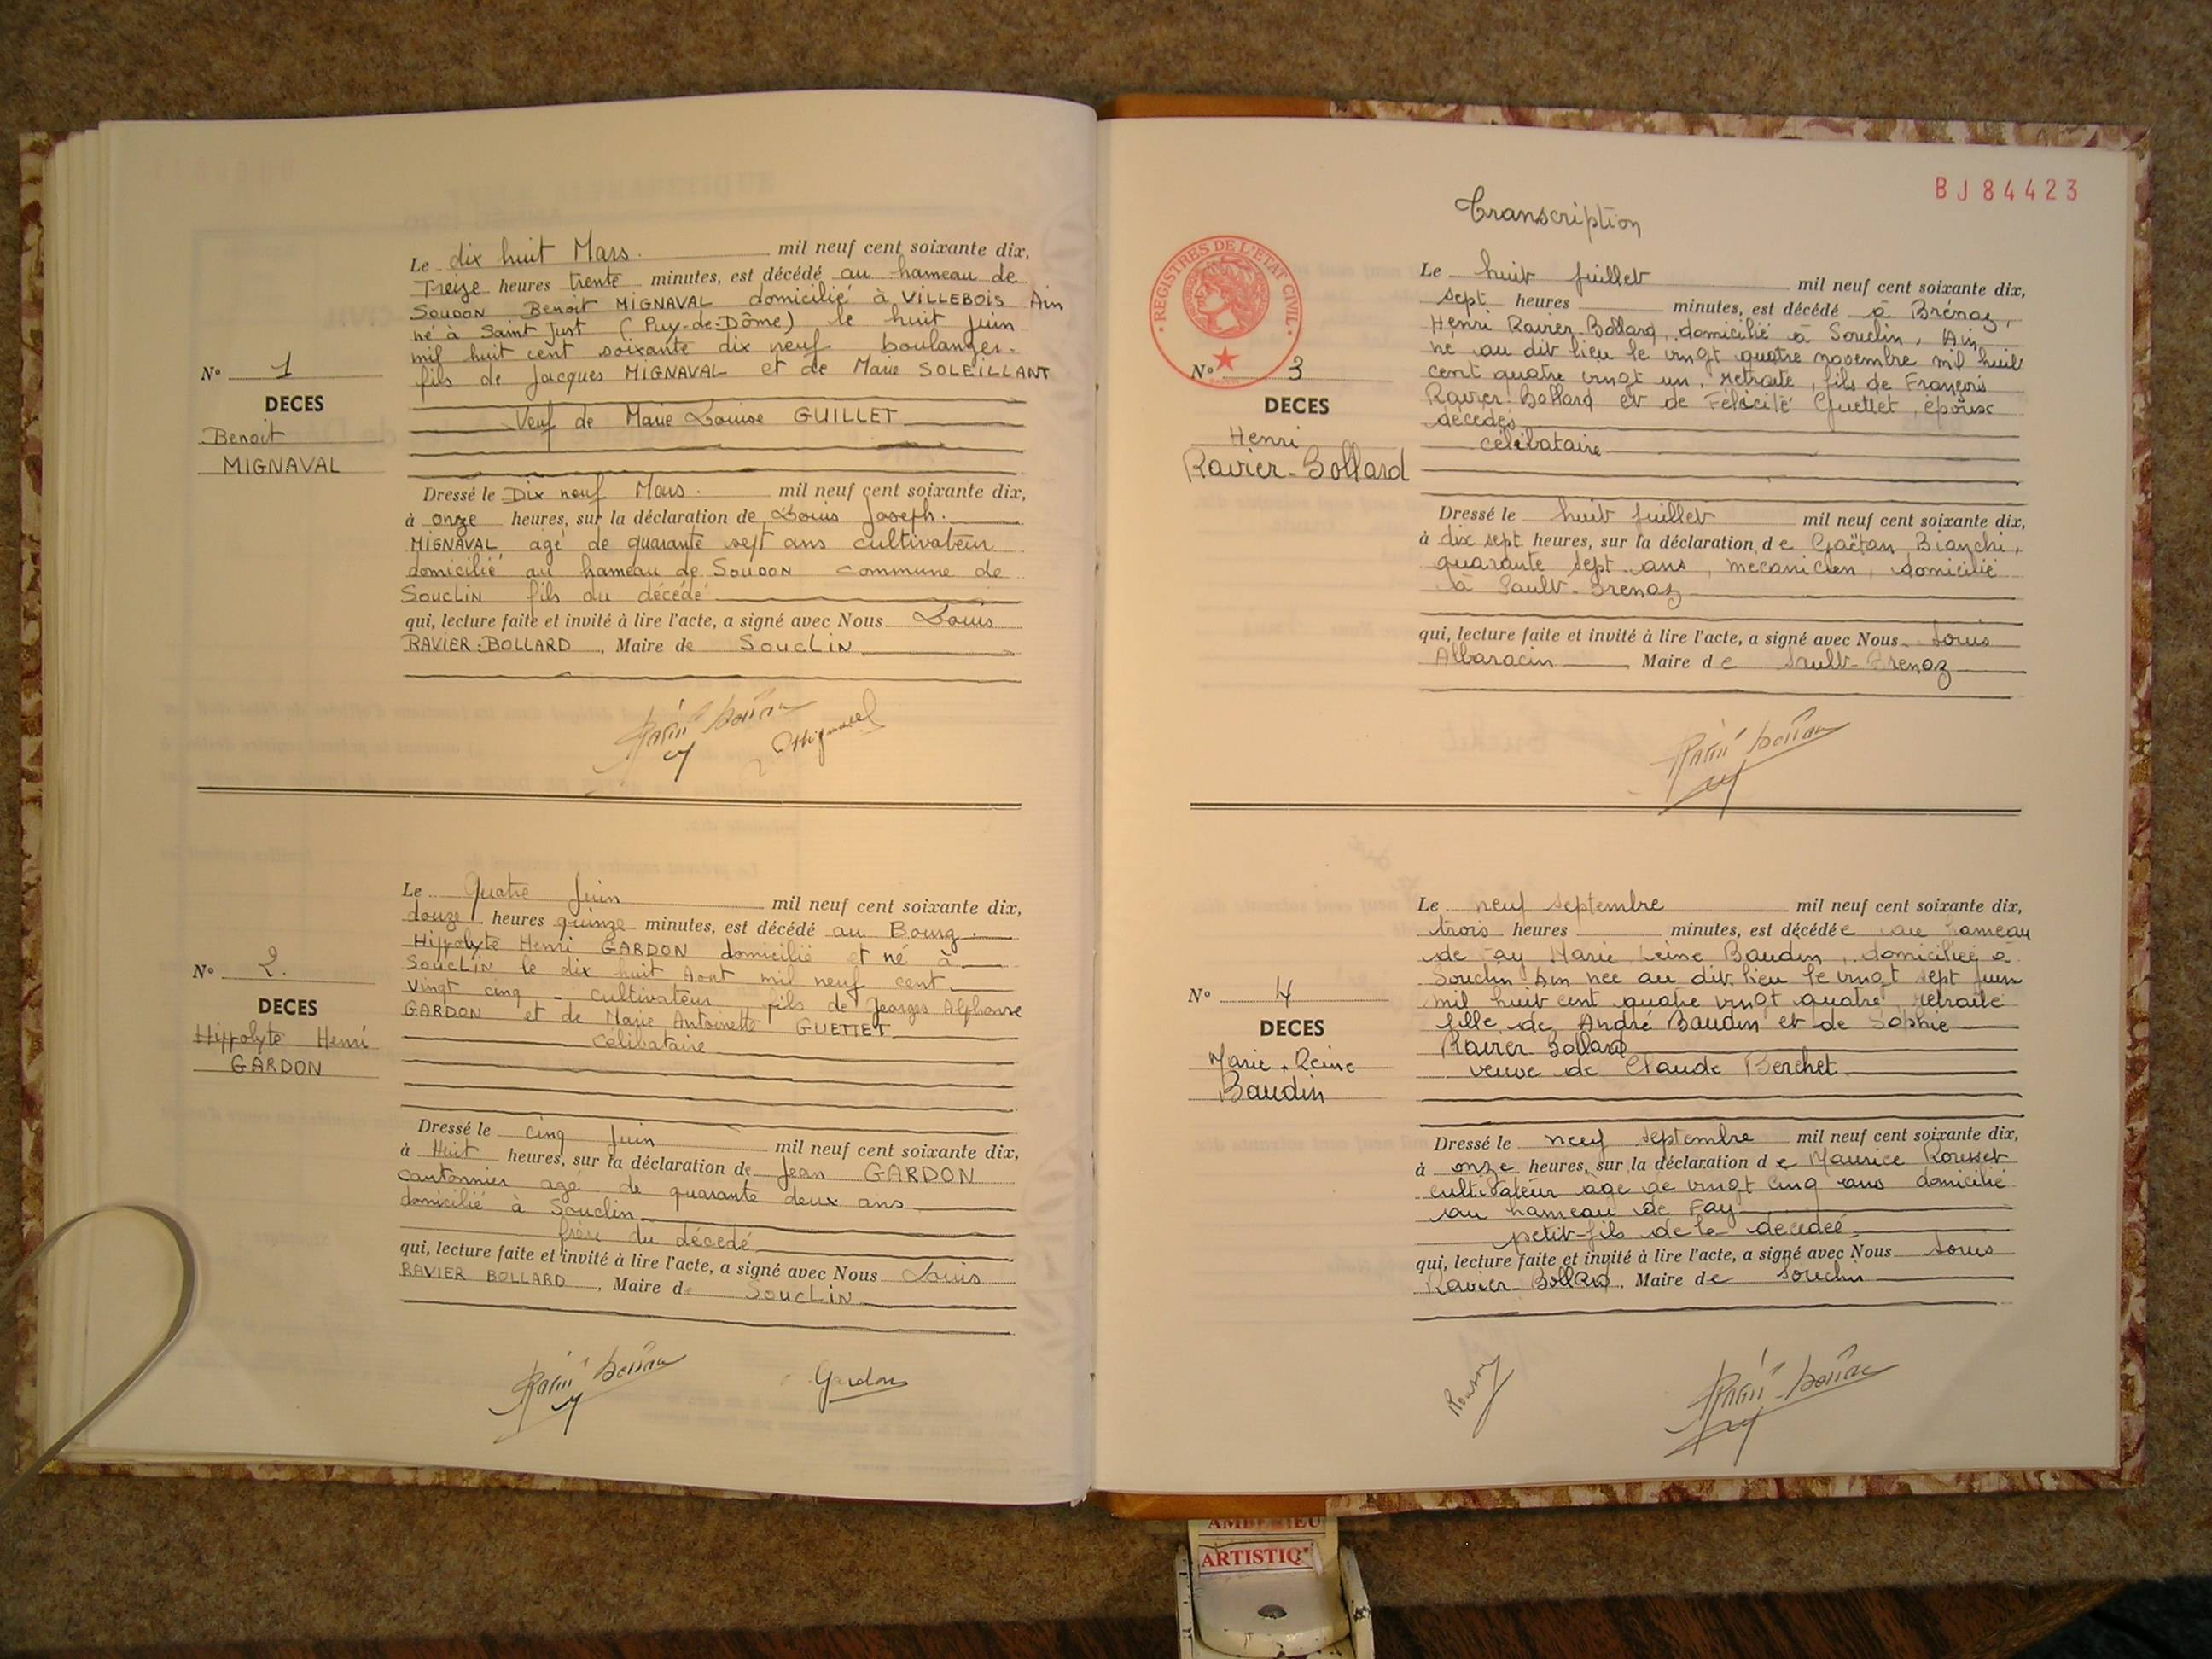 Le dix huit Mars. mil neuf cent soixante dix,
Treize heures trente minutes, est décédé au hameau de
SOUDON Benoit MIGNAVAL domicilié à VILLEBOIS Ain
né à Saint Just (Puy-de-Dôme) le huit juin
mil huit cent soixante dix neuf boulanger.
fils de Jacques MIGNAVAL et de Marie SOLEILLANT
Veuf de Marie Louise GUILLET
N° 1
DECES
Benoit
MIGNAVAL
Dressé le Dix neuf Mars. mil neuf cent soixante dix,
à onze heures, sur la déclaration de Louis Joseph.
MIGNAVAL agé de quarante sept ans cultivateur
domicilié au hameau de SOUDON commune de
SOUCLIN fils du décédé
qui, lecture faite et invité à lire l'acte, a signé avec Nous Louis
RAVIER-BOLLARD, Maire de SOUCLIN
Le Quatre Juin mil neuf cent soixante dix,
douze heures quinze minutes, est décédé au Bourg.
Hippolyte Henri GARDON domicilié et né à
SOUCLIN le dix huit Aout mil neuf cent
vingt cinq - cultivateur fils de Georges Alphonse
GARDON et de Marie Antoinette GUETTET
célibataire
N° 2.
DECES
Hippolyte Henri
GARDON
Dressé le cinq Juin mil neuf cent soixante dix,
à Huit heures, sur la déclaration de Jean GARDON
cantonnier agé de quarante deux ans
domicilié à Souclin
frère du décédé
qui, lecture faite et invité à lire l'acte, a signé avec Nous Louis
RAVIER BOLLARD, Maire de SOUCLIN
Gardon
BJ84423
Transcription
REGISTRES DE L'ÉTAT CIVIL
Le huit juillet mil neuf cent soixante dix,
sept heures minutes, est décédé à Brénaz,
Henri Ravier-Bollard, domicilié à Souclin, Ain
né au dit lieu le vingt quatre novembre mil huit
cent quatre vingt un, retraité, fils de François
Ravier-Bollard et de Félicité Guettet, époux
décédés
célibataire
N° 3
DECES
Henri
Ravier-Bollard
Dressé le huit juillet mil neuf cent soixante dix,
à dix sept heures, sur la déclaration de Gaëtan Bianchi,
quarante sept ans, mécanicien, domicilié
à Sault-Brenaz
qui, lecture faite et invité à lire l'acte, a signé avec Nous Louis
Albaracin, Maire de Sault-Brenaz
Le neuf septembre mil neuf cent soixante dix,
trois heures minutes, est décédée au hameau
de Fay Marie Reine Baudin, domiciliée à
Souclin Ain née au dit lieu le vingt sept juin
mil huit cent quatre vingt quatre retraité
fille de André Baudin et de Sophie
Ravier-Bollard
veuve de Claude Berchet
N° 4
DECES
Marie-Reine
Baudin
Dressé le neuf septembre mil neuf cent soixante dix,
à onze heures, sur la déclaration de Maurice Rousset
cultivateur agé de vingt cinq ans domicilié
au hameau de Fay
petit-fils de la décédée
qui, lecture faite et invité à lire l'acte, a signé avec Nous Louis
Ravier-Bollard, Maire de Souclin
ARTISTIQ